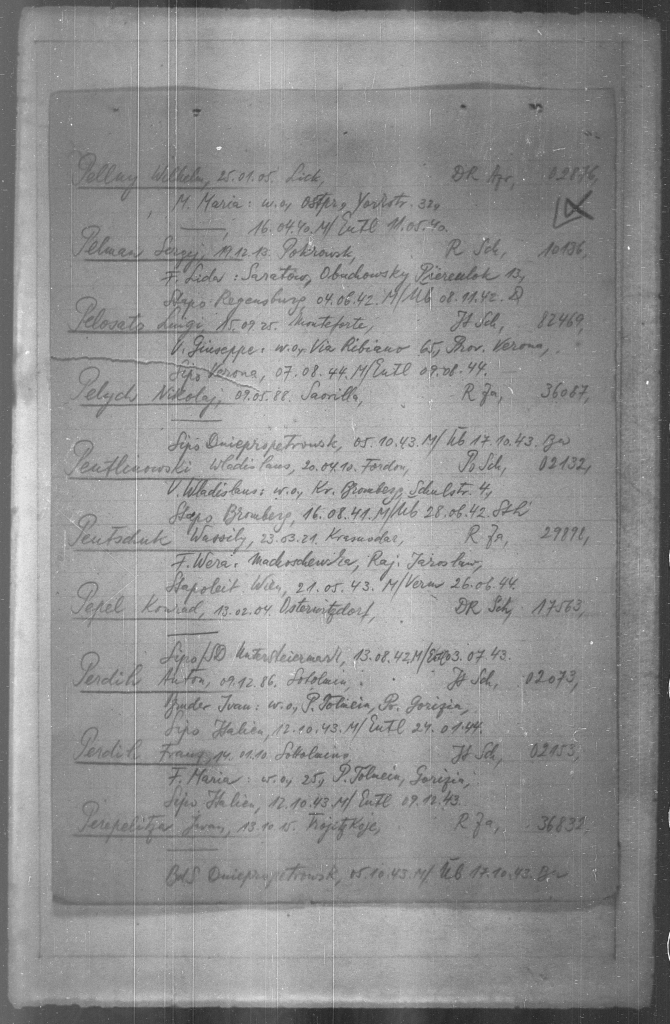 Pellny Wilhelm, 25.01.05. Lick, DR Apr, 02876,
M. Maria: w.o, Ostprg Yorkstr. 32,
16.04.40. M/Entl 11.05.40.
Pelman Sergej, 19.12.13. Pokrowsk, R Sch, 10136,
F. Lida: Saratow, Obuchowsky 13,
Stapo Regensburg 04.06.42. M/Üb 08.11.42. D
Pelosato Luigi, 15.09.25. Monteforte, Jt Sch, 82469,
V. Giuseppe: w.o, Via Ribiano 65, Prov. Verona,
Sipo Verona, 07.08.44. M/Entl 09.08.44.
Pelych Nikolaj, 09.05.88. R Za, 36087,
Sipo Dniepropetrowsk, 05.10.43. M/Üb 17.10.43. Da
Pentlinowski Wladislaus, 20.04.10. Fordon, Po Sch, 02132,
V. Wladislaus: w.o, Kr. Bromberg, Schulstr. 4,
Stapo Bromberg, 16.08.41. M/Üb 28.06.42.
Pentschuk Wassily, 23.03.21. Krasnodar, R Za, 29891,
F. Wera: Machoschewska, Raj. Jaroslaw,
Stapoleit Wien, 21.05.43. M/Verm 26.06.44.
Pepel Konrad, 13.02.04. Osterwitzdorf, DR Sch, 17563,
Sipo/SD Untersteiermark, 13.08.42. M/Entl 03.07.43.
Perdih Anton, 09.12.86. Jt Sch, 02073,
Bruder Ivan: w.o, P. Tolmein, Pr. Gorizia,
Sipo Italien, 12.10.43. M/Entl 24.01.44.
Perdih Franz, 14.01.10. Jt Sch, 02153,
F. Maria: w.o, 25, P. Tolmein, Gorizia,
Sipo Italien, 12.10.43. M/Entl 09.12.43.
Perepelitza Iwan, 13.10.15. R Za, 36832,
BdS Dniepropetrowsk, 05.10.43. M/Üb 17.10.43. Da